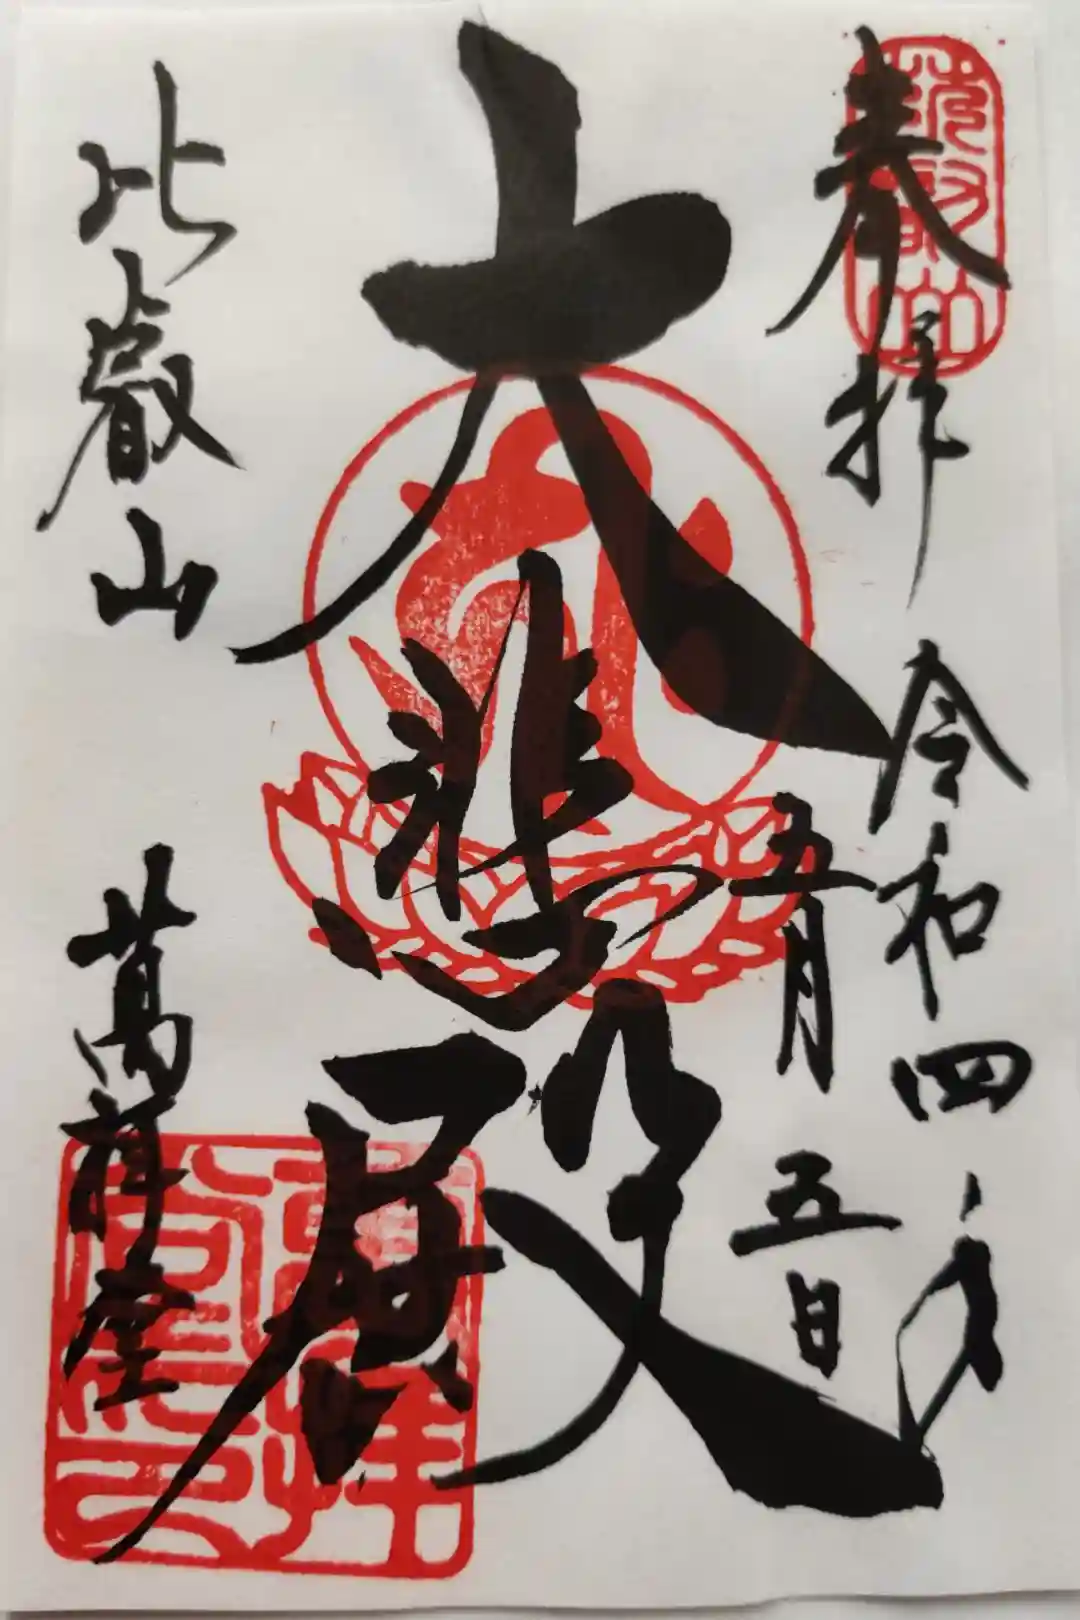 奉拝
令和四年
五月五日
大悲殿
比叡山
萬拝堂